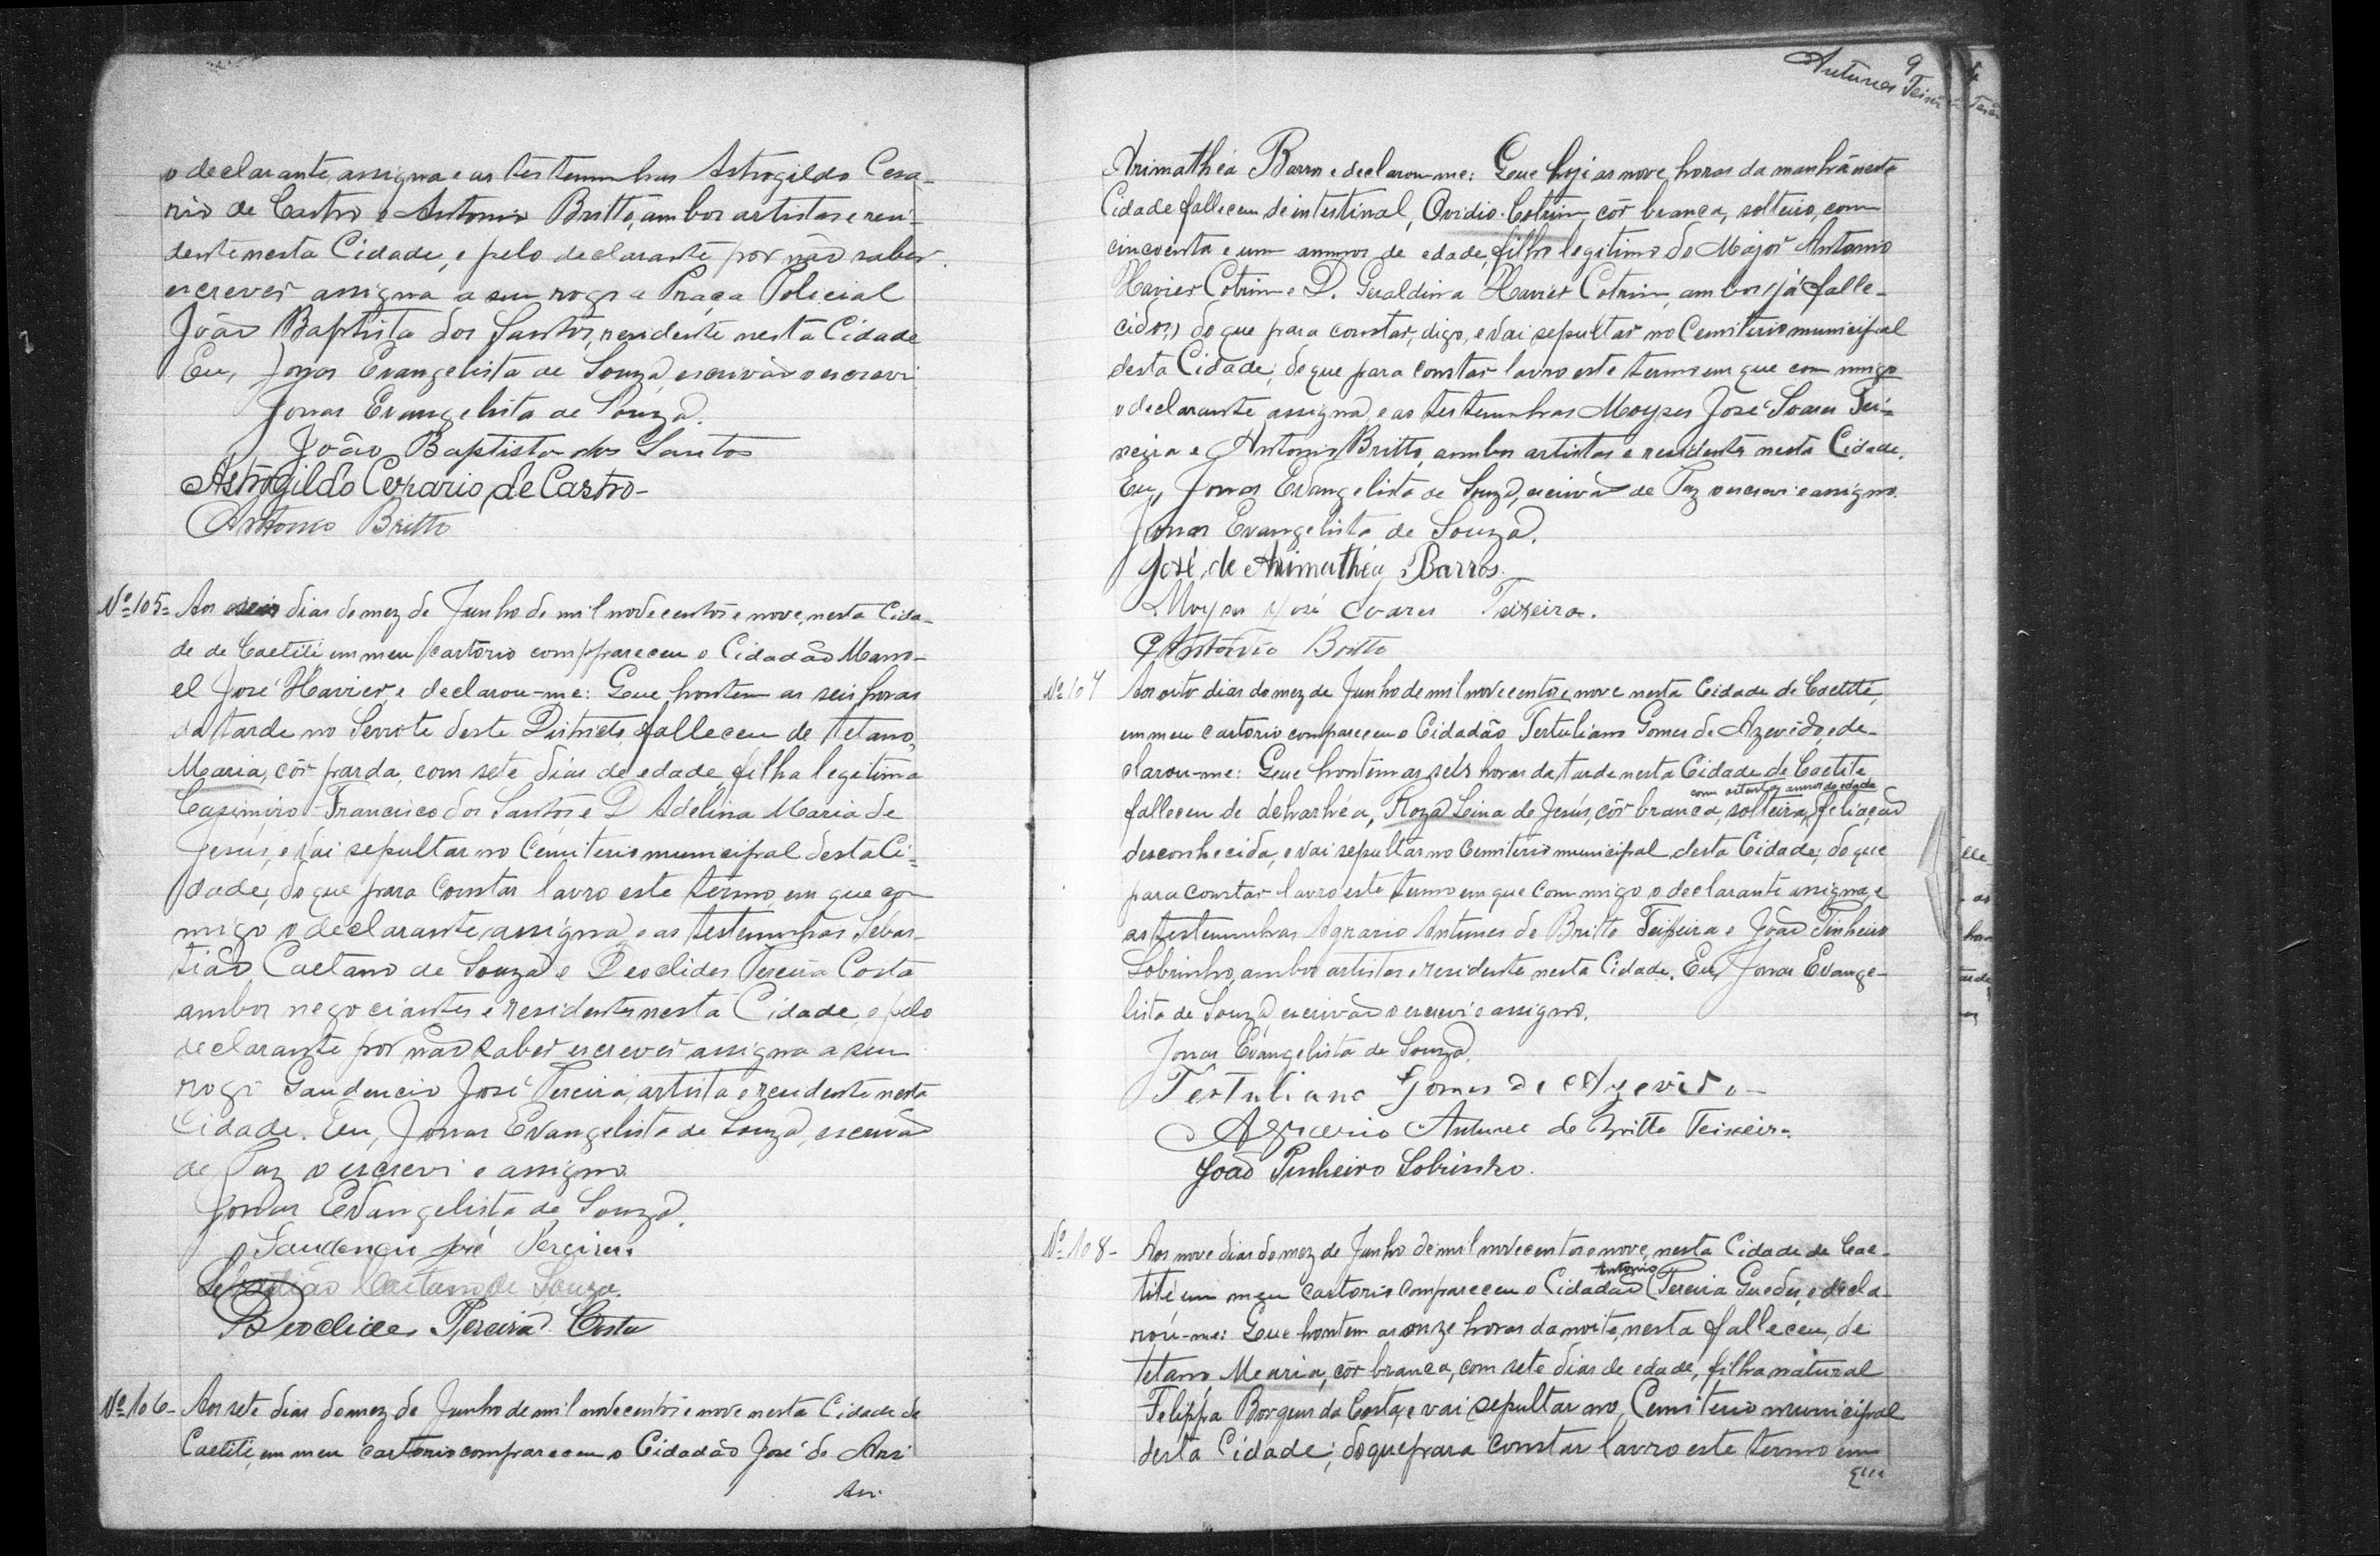 o declarante, assigna e as testemunhas Astrogildo Cesa-
rio de Castro e Antonio Britto, ambos artistas e resi-
dente nesta Cidade, e pelo declarante por não saber
escrever assigna a seu rogo a Praça Policial
João Baptista dos Santos, residente nesta Cidade
Eu, Jonas Evangelista de Souza, escrivão o escrevi
Jonas Evangelista de Souza.
João Baptista dos Santos
Astrogildo Cezario de Castro-
Antonio Britto
Nº 105= Aos seis dias do mez de Junho de mil novecentos e nove, nesta Cida-
de de Caetité em meu cartorio compareceu o Cidadão Mano-
el José Xavier, e declarou-me: Que hontem as seis horas
da tarde no Serrote deste Districto, falleceu de tetano,
Maria, côr parda, com sete dias de edade, filha legitima
Casimiro Francisco dos Santos, e D. Adelina Maria de
Jesus, e vai sepultar no Cemiterio municipal desta Ci-
dade; do que para constar lavro este termo, em que co-
migo o declarante, assigna, e as testemunhas Sebas-
tião Caetano de Souza e Deoclides Pereira Costa
ambos negociantes e residentes nesta Cidade, e pelo
declarante por não saber escrever assigna a seu
rogo Gaudencio José Pereira, artista e residente nesta
Cidade. Eu, Jonas Evangelista de Souza, escrivão
de Paz o escrevi e assigno
Jonas Evangelista de Souza.
Gaudencio José Pereira.
Sebastião Caetano de Souza.
Deoclides Pereira Costa
Nº 106- Aos sete dias do mez de Junho de mil novecentos e nove nesta Cidade de
Caetité, em meu cartorio compareceu o Cidadão José de Ari
Ari
9
Antunes Teixeira
Arimathéa Barros e declarou-me: Que hoje as nove horas da manhã nesta
Cidade falleceu de intestinal, Ovidio Cotrim, côr branca, solteiro, com
cincoenta e um annos de edade, filho legitimo do Major Antonio
Xavier Cotrim e D. Geraldina Xavier Cotrim, ambos já falle-
cidos, do que para constar, digo, e vai sepultar no Cemiterio municipal
desta Cidade; do que para constar lavro este termo em que com migo
o declarante assigna, e as testemunhas Moyses José Soares Tei-
xeira e Antonio Britto, ambos artistas e residentes nesta Cidade.
Eu, Jonas Evangelista de Souza, escrivão de Paz o escrevi e assigno.
Jonas Evangelista de Souza.
José de Arimathéa Barros.
Moyses José Soares Teixeira.
Antonio Britto
Nº 107 Aos oito dias do mez de Junho de mil novecentos e nove nesta Cidade de Caetité,
em meu cartorio compareceu o Cidadão Tertuliano Gomes de Azevêdo, e de-
clarou-me: Que hontem as seis horas da tarde nesta Cidade de Caetité
com oitenta annos de edade
falleceu de deharhéa, Roza Lina de Jesús, côr branca, solteira, feliação
desconhecida, e vai sepultar no Cemiterio municipal desta Cidade; do que
para constar lavro este termo em que commigo o declarante assigna, e
as testemunhas Agrario Antunes de Britto Teixeira e João Pinheiro
Sobrinho, ambos artistas e residente nesta Cidade. Eu, Jonas Evange-
lista de Souza, escrivão o escrevi e assigno.
Jonas Evangelista de Souza.
Tertuliano Gomes de Azevêdo-
Agrario Antunes de Britto Teixeira.
João Pinheiro Sobrinho.
Nº 108- Aos nove dias do mez de Junho de mil novecentos e nove, nesta Cidade de Cae-
Antonio
tité em meu cartorio compareceu o Cidadão Pereira Guedes, e decla-
rou-me: Que hontem as onze horas da noite, nesta falleceu, de
tetano, Maria, côr branca, com sete dias de edade, filha natural
Felippa Borges da Costa, e vai sepultar no Cemiterio municipal
desta Cidade; do que para constar lavro este termo em
que